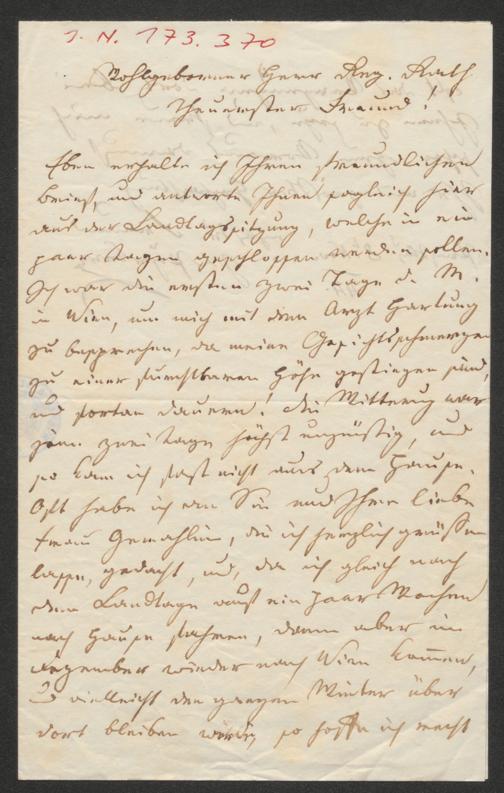 I. N. 173.370
Wohlgeborner Herr Reg. Rath
Theuerster Freund!
Eben erhalte ich Ihren freundlichen
Brief, und antworte Ihnen sogleich hier
aus der Landtagssitzung, welche in ein
paar Tagen geschlossen werden sollen.
Ich war die ersten zwei Tage d. M.
in Wien, um mich mit dem Arzt Hartung
zu besprechen, da meine Gesichtsschmerzen
zu einer furchtbaren Höhe gestiegen sind,
und fortan dauern! Die Witterung war
jene zwei Tage höchst ungünstig, und
so kam ich fast nicht aus dem Hause.
Oft habe ich an Sie und Ihre liebe
Frau Gemahlin, die ich herzlich grüßen
lasse, gedacht, und, da ich gleich nach
dem Landtage auf ein paar Wochen
nach Hause fahren, dann aber im
Dezember wieder nach Wien kommen,
und vielleicht den ganzen Winter über
dort bleiben werde, so hoffe ich recht